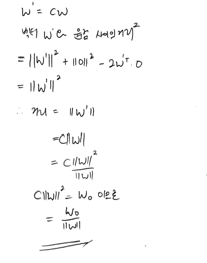 W' = CW
벡터 W'와 원점 사이의 거리²
= ||W'||² + ||0||² - 2W'ᵀ·0
= ||W'||²
∴ 거리 = ||W'||
= C||W||
= C||W||² / ||W||
C||W||² = W₀ 이므로
= W₀ / ||W||